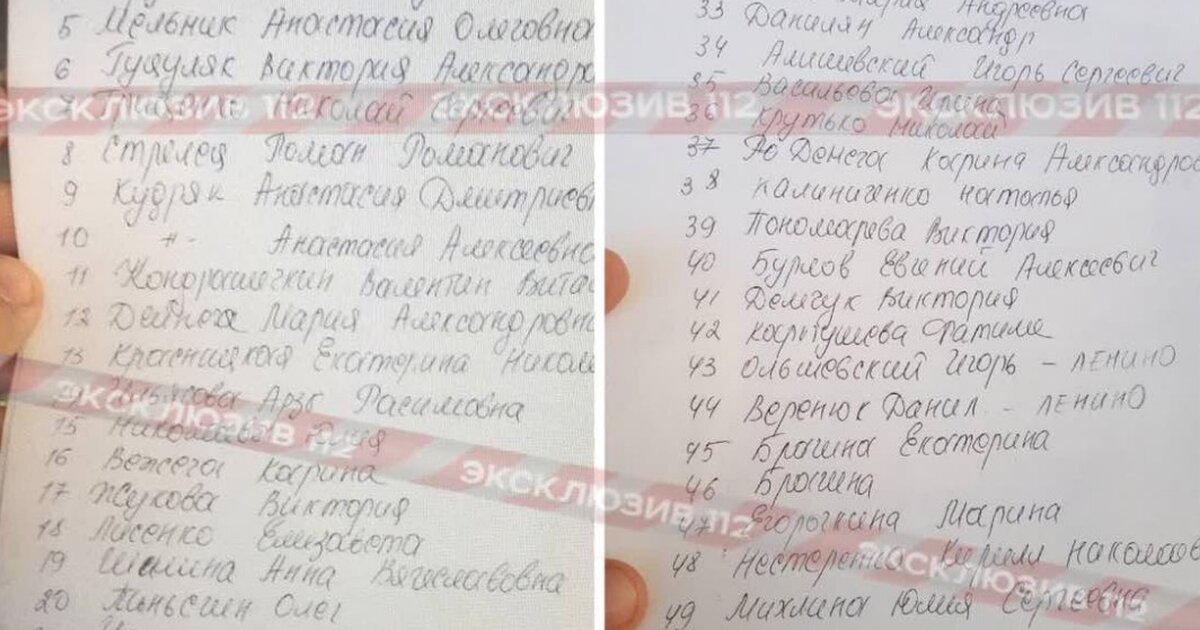 5 Мельник Анастасия Олеговна
6 Гудуляк Виктория Александро
7 Николай Сергеевич
8 Стрелец Роман Романович
9 Кудряк Анастасия Дмитриевн
10 -"- Анастасия Алексеевна
11 Кондрашечкин Валентин Вита
12 Дейнега Мария Александровн
13 Красницкая Екатерина Никола
Арзы Расимовна
15 Юлия
16 Вежега Карина
17 Жукова Виктория
18 Лисенко Елизавета
19 Шанина Анна Вячеславовна
20 Олег
ЭКСКЛЮЗИВ 112
ЭКСКЛЮЗИВ 112
ЭКСКЛЮЗИВ 112
Андреевна
33 Данилян Александр
34 Алишевский Игорь Сергеевич
35 Васильева Ирина
36 Крутько Николай
37 Денега Карина Александров
38 Калиниченко Наталья
39 Пономарева Виктория
40 Бурлов Евгений Алексеевич
41 Демчук Виктория
42 Картушева Фатиме
43 Ольшевский Игорь – ЛЕНИНО
44 Веренюк Данил – ЛЕНИНО
45 Брагина Екатерина
46 Брагина
47 Егорычкина Марина
48 Кирилл
49 Михлина Юлия Сергеевна
ЭКСКЛЮЗИВ 112
ЭКСКЛЮЗИВ 112